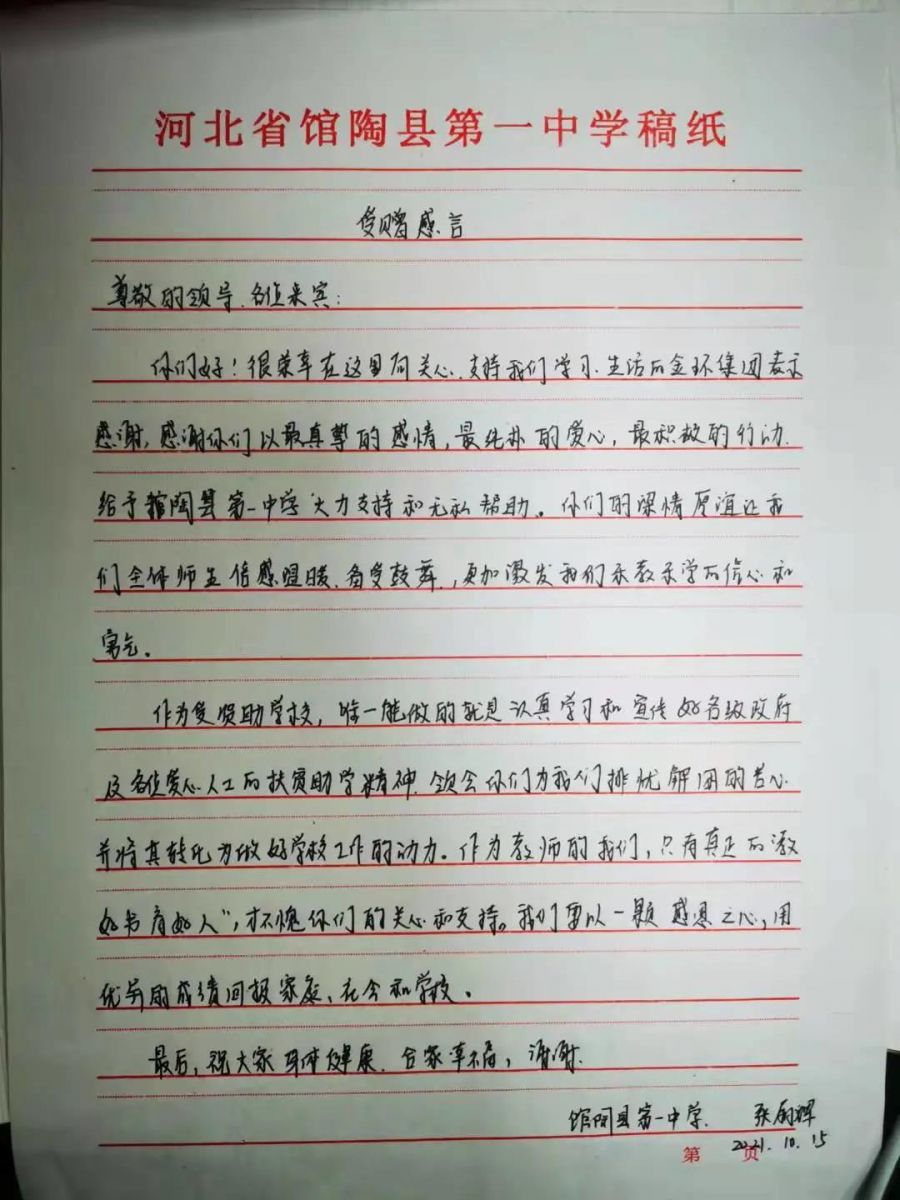 河北省馆陶县第一中学稿纸
受赠感言
尊敬的领导、各位来宾:
你们好!很荣幸在这里向关心、支持我们学习、生活的金环集团表示
感谢,感谢你们以最真挚的感情,最纯朴的爱心,最积极的行动
给予馆陶县第一中学大力支持和无私帮助。你们的深情厚谊让我
们全体师生倍感温暖、备受鼓舞,更加激发我们乐教乐学的信心和
勇气。
作为受资助学校,唯一能做的就是认真学习和宣传好各级政府
及各位爱心人士的扶贫助学精神,领会你们为我们排忧解困的苦心
并将其转化为做好学校工作的动力。作为教师的我们,只有真正的“教
好书育好人”,才不愧你们的关心和支持。我们要以一颗感恩之心,用
优异的成绩回报家庭、社会和学校。
最后,祝大家身体健康、合家幸福,谢谢.
馆陶县第一中学 张丽辉
2021.10.15
第 页